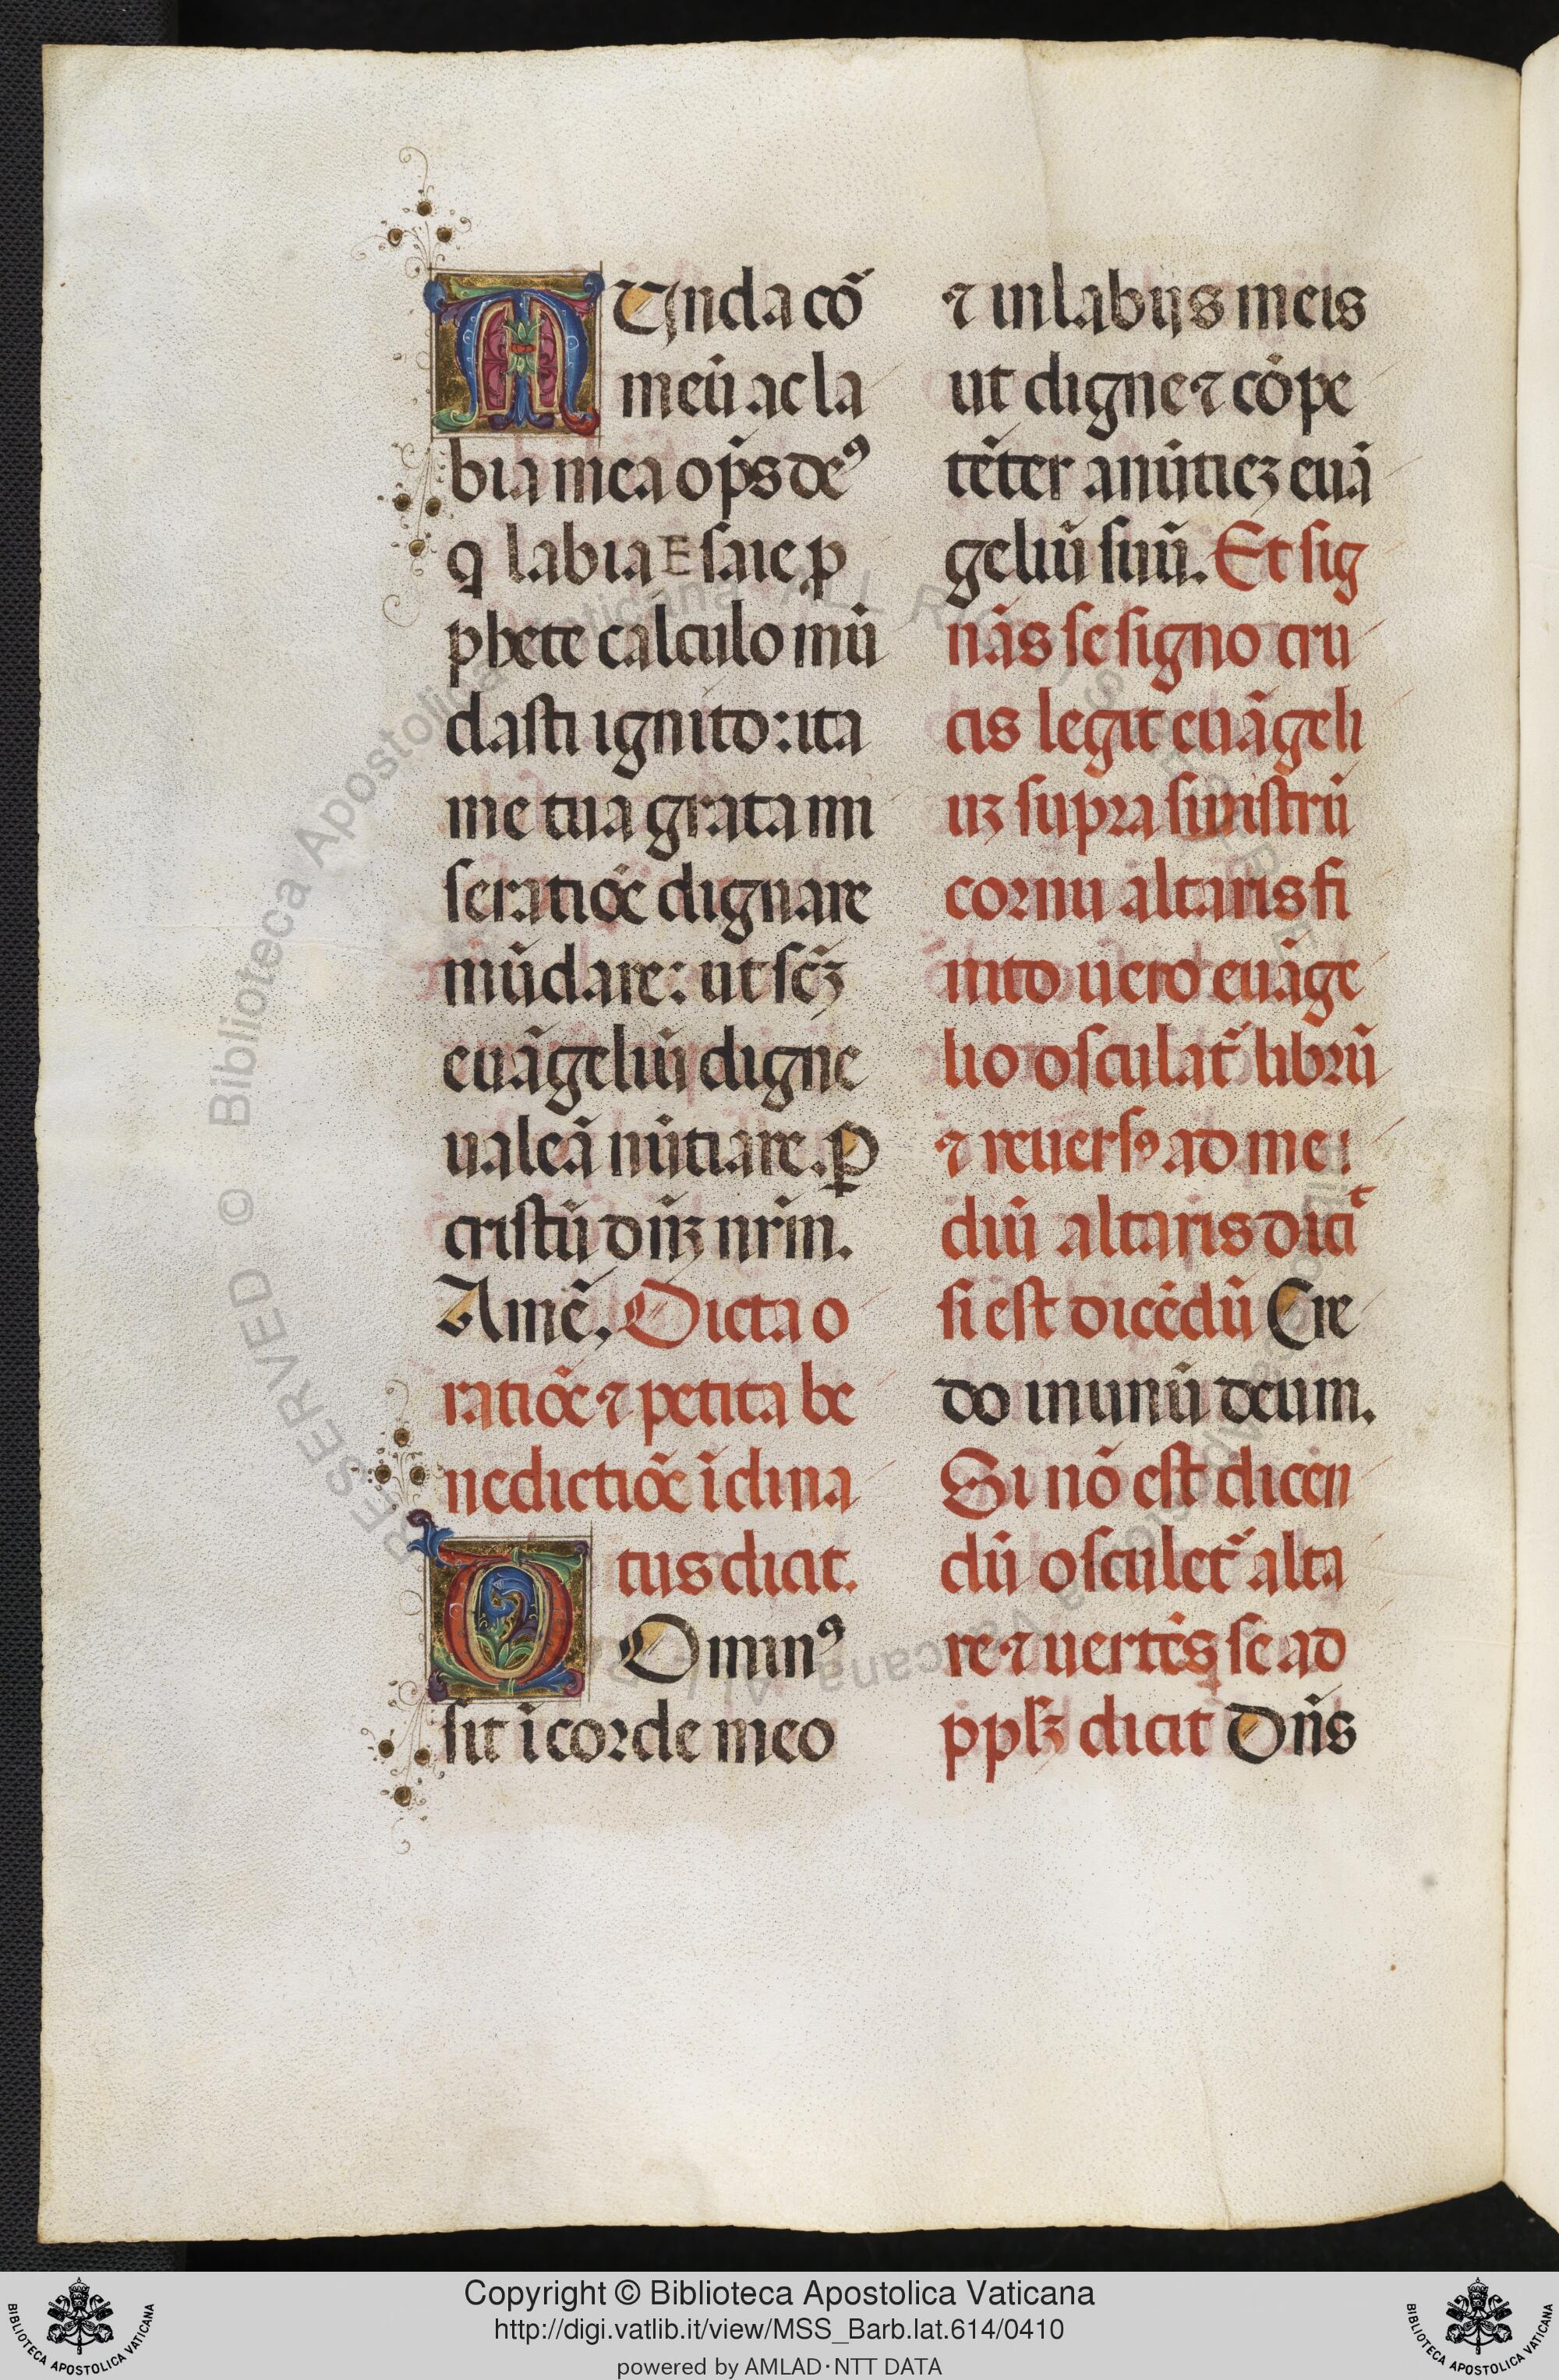 MUnda cõ
meũ ac la
bia mea op̃s deꝰ
q labia Esaie ꝓ
phete calculo mũ
dasti ignito: ita
me tua grata mi
seratiõe dignare
mũdare: ut scẽʒ
euãgeliũ digne
ualeã nũtiare. ꝑ
cristũ dñʒ nrm̃.
Amẽ. Dicta o
ratiõe ⁊ petita be
nedictiõe ĩclina
tus dicit.
DOminꝰ
sit ĩ corde meo
⁊ in labijs meis
ut digne ⁊ cõpe
tẽter anũtieʒ euã
geliũ suũ. Et sig
nãs se signo cru
cis legit euãgeli
uʒ supra sinistrũ
cornu altaris fi
nito uero euãge
lio osculat̃ librũ
⁊ reuersꝰ ad me
diũ altaris dicit
si est dicẽdũ Cre
do in unũ deum.
Si nõ est dicen
dũ osculet̃ alta
re ⁊ uertẽs se ad
ppłʒ dicit Dñs
Copyright © Biblioteca Apostolica Vaticana
http://digi.vatlib.it/view/MSS_Barb.lat.614/0410
powered by AMLAD·NTT DATA
BIBLIOTECA APOSTOLICA VATICANA
BIBLIOTECA APOSTOLICA VATICANA